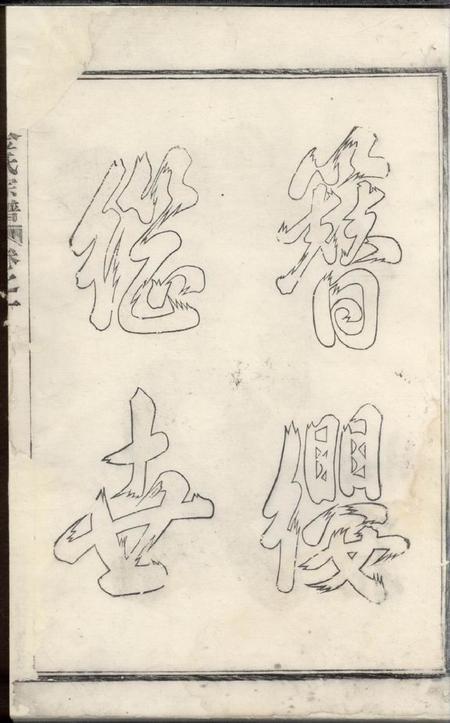 簪纓
繼世